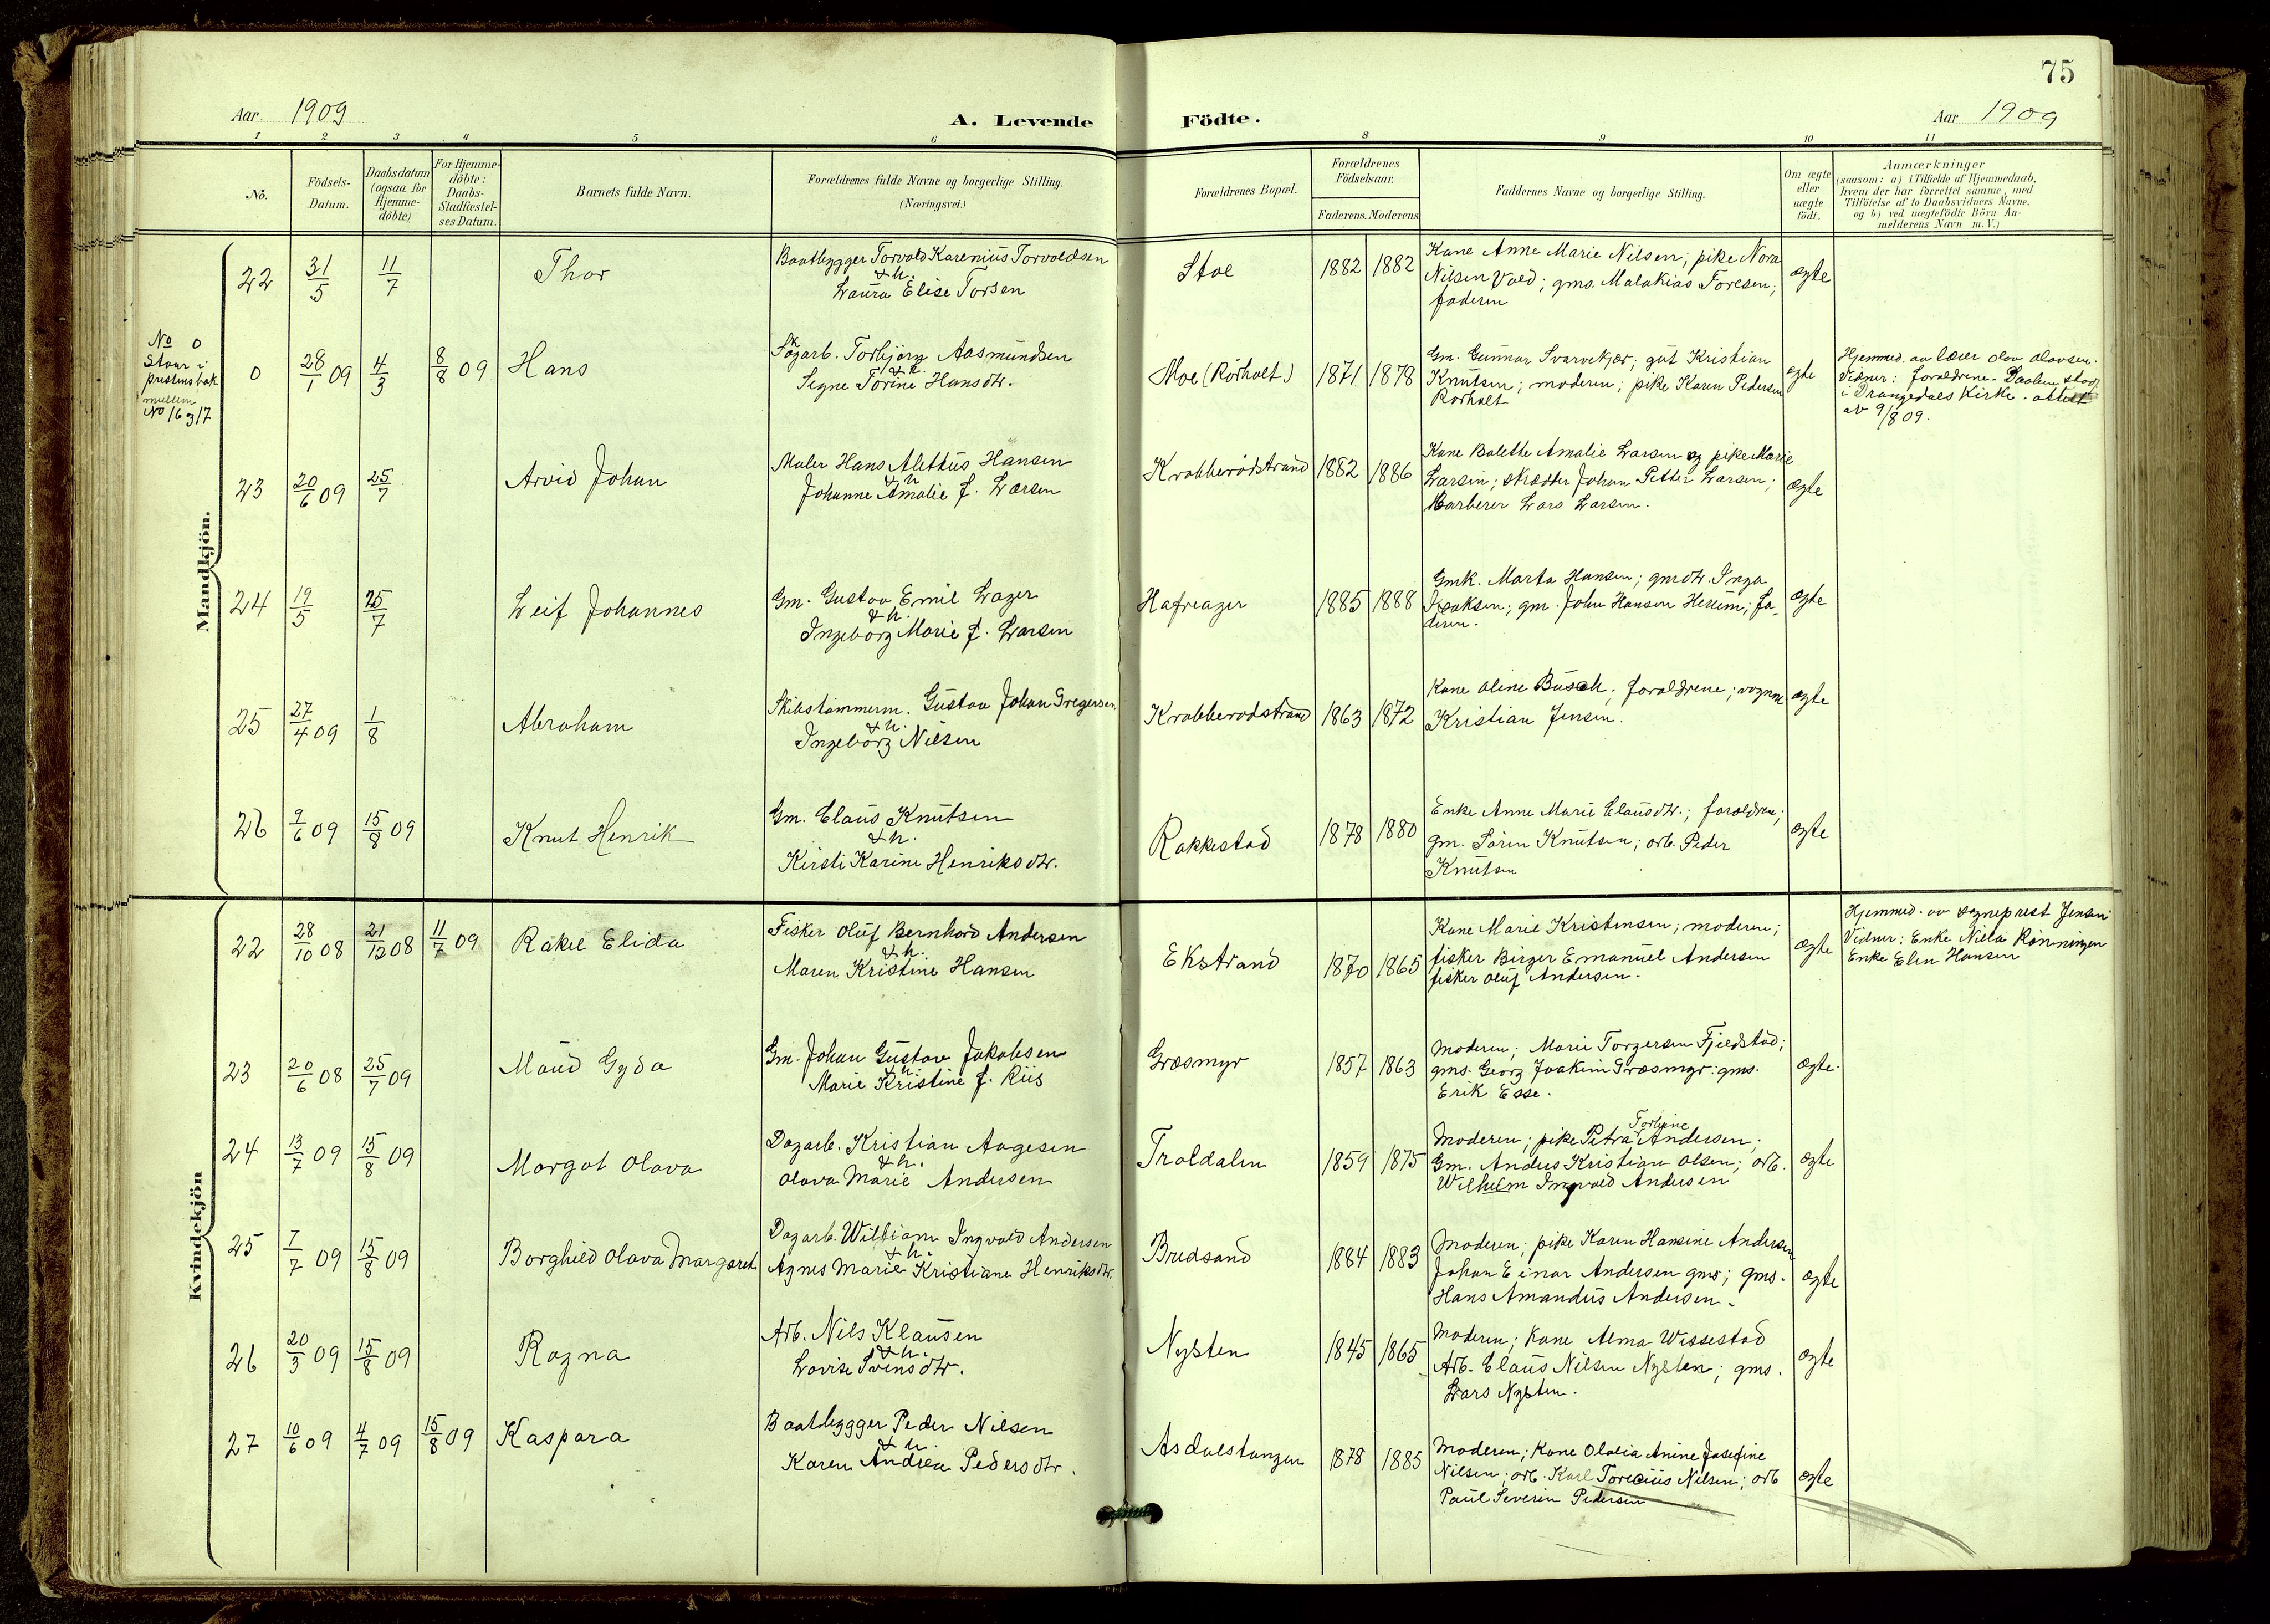 75
Aar 1909
A. Levende Födte.
Aar 1909
1 2 3 4 5 6 8 9 10 11
No.
Födsels-
Datum.
Daabsdatum
(ogsaa for
Hjemme-
döbte)
For Hjemme-
döbte:
Daabs-
Stadfæstel-
ses Datum.
Barnets fulde Navn.
Forældrenes fulde Navne og borgerlige Stilling.
(Næringsvei.)
Forældrenes Bopæl.
Forældrenes
Födselsaar.
Faderens. Moderens
Faddernes Navne og borgerlige Stilling.
Om ægte
eller
uægte
födt.
Anmærkninger
(saasom: a) i Tilfælde af Hjemmedaab,
hvem der har forrettet samme, med
Tilföielse af to Daabsvidners Navne.
og b) ved uægtefödte Börn An-
melderens Navn m. V.)
Mandkjön.
22 31/5 11/7 Thor
Baatbygger Torvald Karenius Torvaldsen
& h.
Laura Elise Torsen
Stoe 1882 1882
Kane Anne Marie Nilsen; pike Nora
Nilsen Vold; gms. Malakias Toresen;
faderen
ægte
No 0
Staar i
prestens bok
mellem
No 16 og 17
0 28/1 09 4/3 8/8 09 Hans
Skogarb. Torbjørg Aasmundsen
& h.
Signe Torine Hansdtr.
Moe (Rörholt) 1871 1878
Gm. Gunnar Svarvekjær; gut Kristian
Knutsen; moderen; pike Karen Pedersen
Rorholt
ægte
Hjemmed. av lærer Olav Olavsen.
Vidner: forældrene. Daaben stadf.
i Drangedals Kirke. attest
av 9/8 09.
23 20/6 09 25/7 Arvid Johan
Maler Hans Alettus Hansen
& h
Johanne Amalie f. Larsen
Krabberødstrand 1882 1886
Kane Balette Amalie Larsen og pike Marie
Larsen; skrædder Johan Petter Larsen;
Barberer Lars Larsen.
ægte
24 19/5 25/7 Leif Johannes
Gm. Gustav Emil Lager
& h.
Ingeborg Marie f. Larsen
Hafreager 1885 1888
Gmk. Marta Hansen; gmdtr. Inga
Isaksen; gm. John Hansen Herum; fa-
deren.
ægte
25 27/4 09 1/8 Abraham
Skibstømmerm. Gustav Johan Gregersen
& h.
Ingeborg Nilsen
Krabberødstrand 1863 1872
Kane Oline Busch; forældrene; vognm
Kristian Jensen.
ægte
26 9/6 09 15/8 09 Knut Henrik
Gm. Claus Knutsen
& h.
Kirsti Karine Henriksdtr.
Rakkestad 1878 1880
Enke Anne Marie Clausdtr.; forældrene;
gm. Sören Knutsen; arb. Peder
Knutsen
ægte
Kvindekjön
22 28/10 08 21/12 08 11/7 09 Rakel Elida
Fisker Oluf Bernhard Andersen
& h.
Maren Kristine Hansen
Ekstrand 1870 1865
Kane Marie Kristensen; moderen;
fisker Birger Emanuel Andersen
fisker Oluf Andersen.
ægte
Hjemmed. av sogneprest Jensen
Vidner: Enke Nilla Rönningen
Enke Elen Hansen
23 20/6 08 25/7 09 Maud Gyda
Gm. Johan Gustav Jakobsen
& h.
Marie Kristine f. Riis
Græsmyr 1857 1863
Moderen; Marie Torgersen Fjeldstad;
gms. Georg Joakim Græsmyr: gms.
Erik Esse.
ægte.
24 13/7 09 15/8 09 Margot Olava
Dagarb. Kristian Aagesen
& h.
Olava Marie Andersen
Traldalen 1859 1875
Moderen; pike Petra Torbine Andersen;
Gm. Anders Kristian Olsen; arb.
Wilhelm Ingvald Andersen
ægte
25 7/7 09 15/8 09 Borghild Olava Margaret
Dagarb. William Ingvald Andersen
& h.
Agnes Marie Kristiane Henriksdtr.
Bredsand 1884 1883
Moderen; pike Karen Hansine Andersen
Johan Einar Andersen gms; gms.
Hans Amandus Andersen.
ægte
26 20/3 09 15/8 09 Ragna
Arb. Nils Klausen
& h.
Lovise Svensdtr.
Nysten 1845 1865
Moderen; Kane Alma Wissestad
Arb. Claus Nilsen Nysten; gms.
Lars Nysten.
ægte
27 10/6 09 4/7 09 15/8 09 Kaspara
Baatbygger Peder Nilsen
& h.
Karen Andrea Pedersdtr.
Asdalstangen 1878 1885
Moderen; Kane Olalia Anine Josefine
Nilsen; arb. Karl Nilsen; arb
Paul Severin Pedersen
ægte